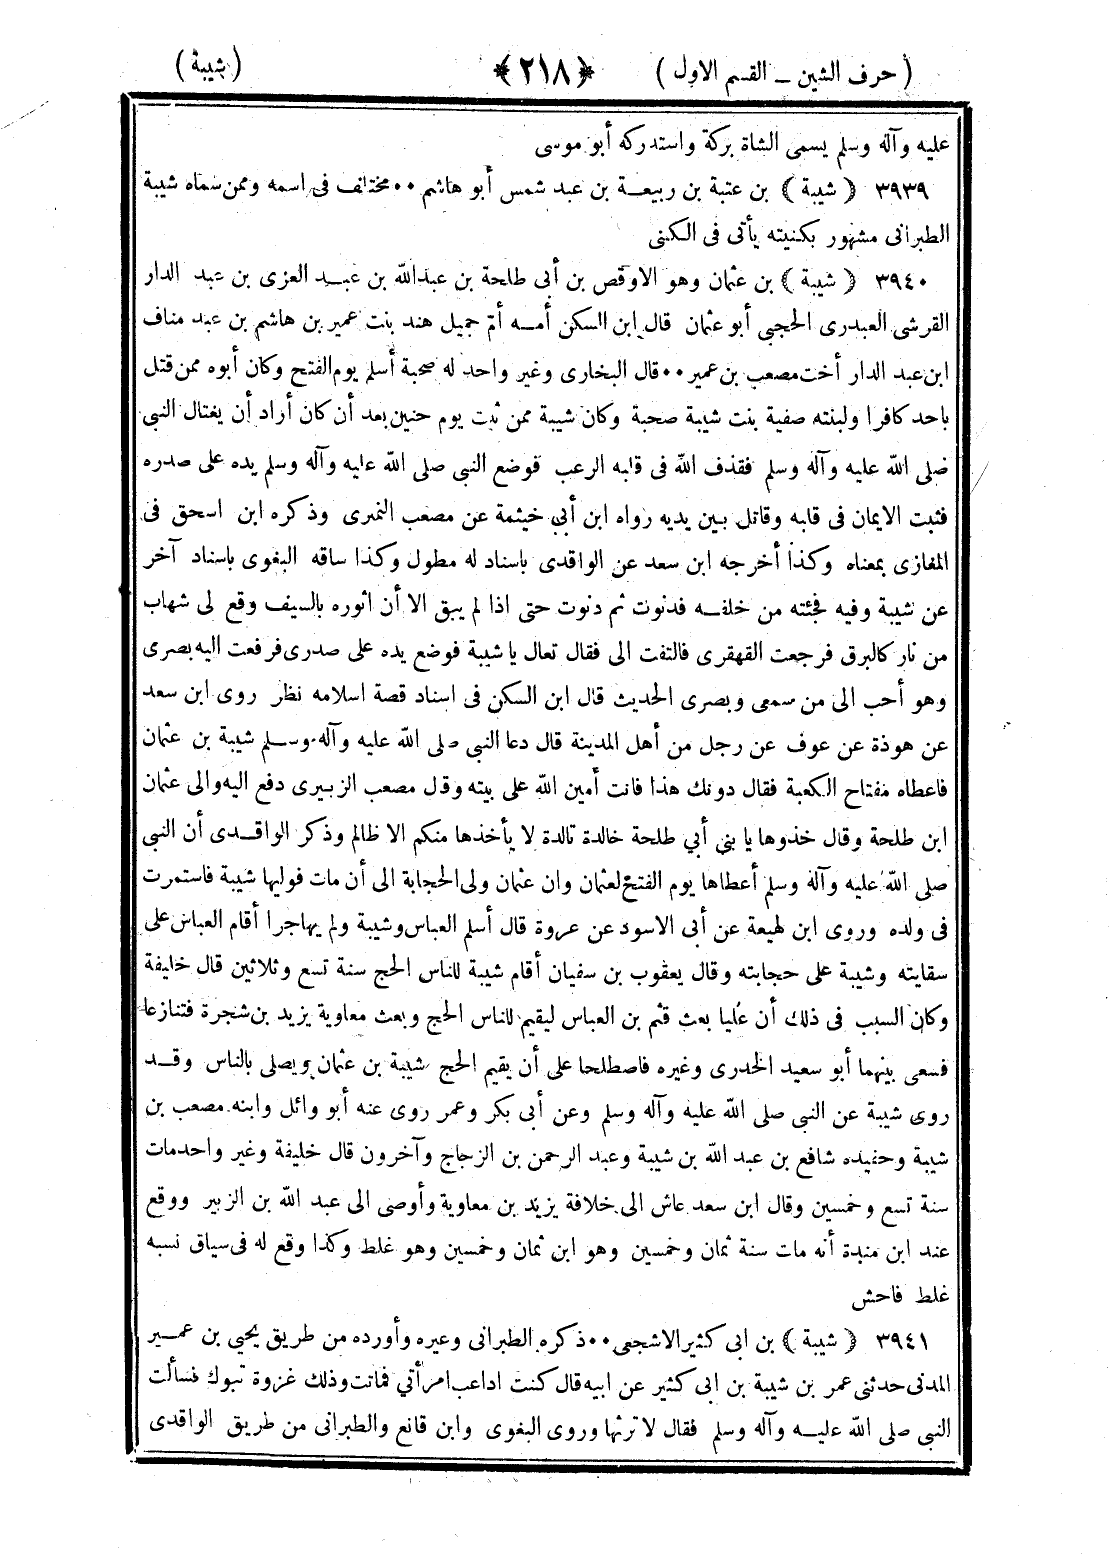 ( حرف الشين ــ القسم الاول ) ﴿ ٢١٨ ﴾ ( شيبة )
عليه وآله وسلم يسمى الشاة بركة واستدركه أبو موسى
٣٩٣٩ ﴿ شيبة ﴾ بن عتبة بن ربيعـة بن عبد شمس أبو هاشم ٠٠ مختلف فى اسمه وممن سماه شيبة
الطبرانى مشهور بكنيته يأتى فى الكنى
٣٩٤٠ ﴿ شيبة ﴾ بن عثمان وهو الاوقص بن أبى طلحة بن عبدالله بن عبد العزى بن عبد الدار
القرشى العبدرى الحجبى أبو عثمان قال ابن السكن أمه أم جميل هند بنت عمير بن هاشم بن عبد مناف
ابن عبد الدار أخت مصعب بن عمير ٠٠ قال البخارى وغير واحد له صحبة أسلم يوم الفتح وكان أبوه ممن قتل
باحد كافرا ولبنته صفية بنت شيبة صحبة وكان شيبة ممن ثبت يوم حنين بعد أن كان أراد أن يغتال النبى
صلى الله عليه وآله وسلم فقذف الله فى قلبه الرعب فوضع النبى صلى الله عليه وآله وسلم يده على صدره
فثبت الايمان فى قلبه وقاتل بين يديه رواه ابن أبي خيثمة عن مصعب النمرى وذكره ابن اسحق فى
المغازى بمعناه وكذا أخرجه ابن سعد عن الواقدى باسناد له مطول وكذا ساقه البغوى باسناد آخر
عن شيبة وفيه فجئته من خلفه فدنوت ثم دنوت حتى اذا لم يبق الا أن اثوره بالسيف وقع لى شهاب
من نار كالبرق فرجعت القهقرى فالتفت الى فقال تعال يا شيبة فوضع يده على صدرى فرفعت اليه بصرى
وهو أحب الى من سمعى وبصرى الحديث قال ابن السكن فى اسناد قصة اسلامه نظر روى ابن سعد
عن هوذة عن عوف عن رجل من أهل المدينة قال دعا النبى صلى الله عليه وآله وسلم شيبة بن عثمان
فاعطاه مفتاح الكعبة فقال دونك هذا فانت أمين الله على بيته وقال مصعب الزبيرى دفع اليه والى عثمان
ابن طلحة وقال خذوها يا بني أبي طلحة خالدة تالدة لا يأخذها منكم الا ظالم وذكر الواقدى أن النبى
صلى الله عليه وآله وسلم أعطاها يوم الفتح لعثمان وان عثمان ولى الحجابة الى أن مات فوليها شيبة فاستمرت
فى ولده وروى ابن لهيعة عن أبى الاسود عن عروة قال أسلم العباس وشيبة ولم يهاجرا أقام العباس على
سقايته وشيبة على حجابته وقال يعقوب بن سفيان أقام شيبة للناس الحج سنة تسع وثلاثين قال خليفة
وكان السبب فى ذلك أن عليا بعث قثم بن العباس ليقيم للناس الحج وبعث معاوية يزيد بن شجرة فتنازعا
فسعى بينهما أبو سعيد الخدرى وغيره فاصطلحا على أن يقيم الحج شيبة بن عثمان ويصلى بالناس وقد
روى شيبة عن النبى صلى الله عليه وآله وسلم وعن أبى بكر وعمر روى عنه أبو وائل وابنه مصعب بن
شيبة وحفيده شافع بن عبد الله بن شيبة وعبد الرحمن بن الزجاج وآخرون قال خليفة وغير واحد مات
سنة تسع وخمسين وقال ابن سعد عاش الى خلافة يزيد بن معاوية وأوصى الى عبد الله بن الزبير ووقع
عند ابن مندة أنه مات سنة ثمان وخمسين وهو ابن ثمان وخمسين وهو غلط وكذا وقع له فى سياق نسبه
غلط فاحش
٣٩٤١ ﴿ شيبة ﴾ بن ابى كثير الاشجعى ٠٠ ذكره الطبرانى وغيره وأورده من طريق يحيى بن عمير
المدنى حدثنى عمر بن شيبة بن ابى كثير عن ابيه قال كنت اداعب امرأتي فماتت وذلك غزوة تبوك فسألت
النبى صلى الله عليه وآله وسلم فقال لا ترثها وروى البغوى وابن قانع والطبرانى من طريق الواقدى